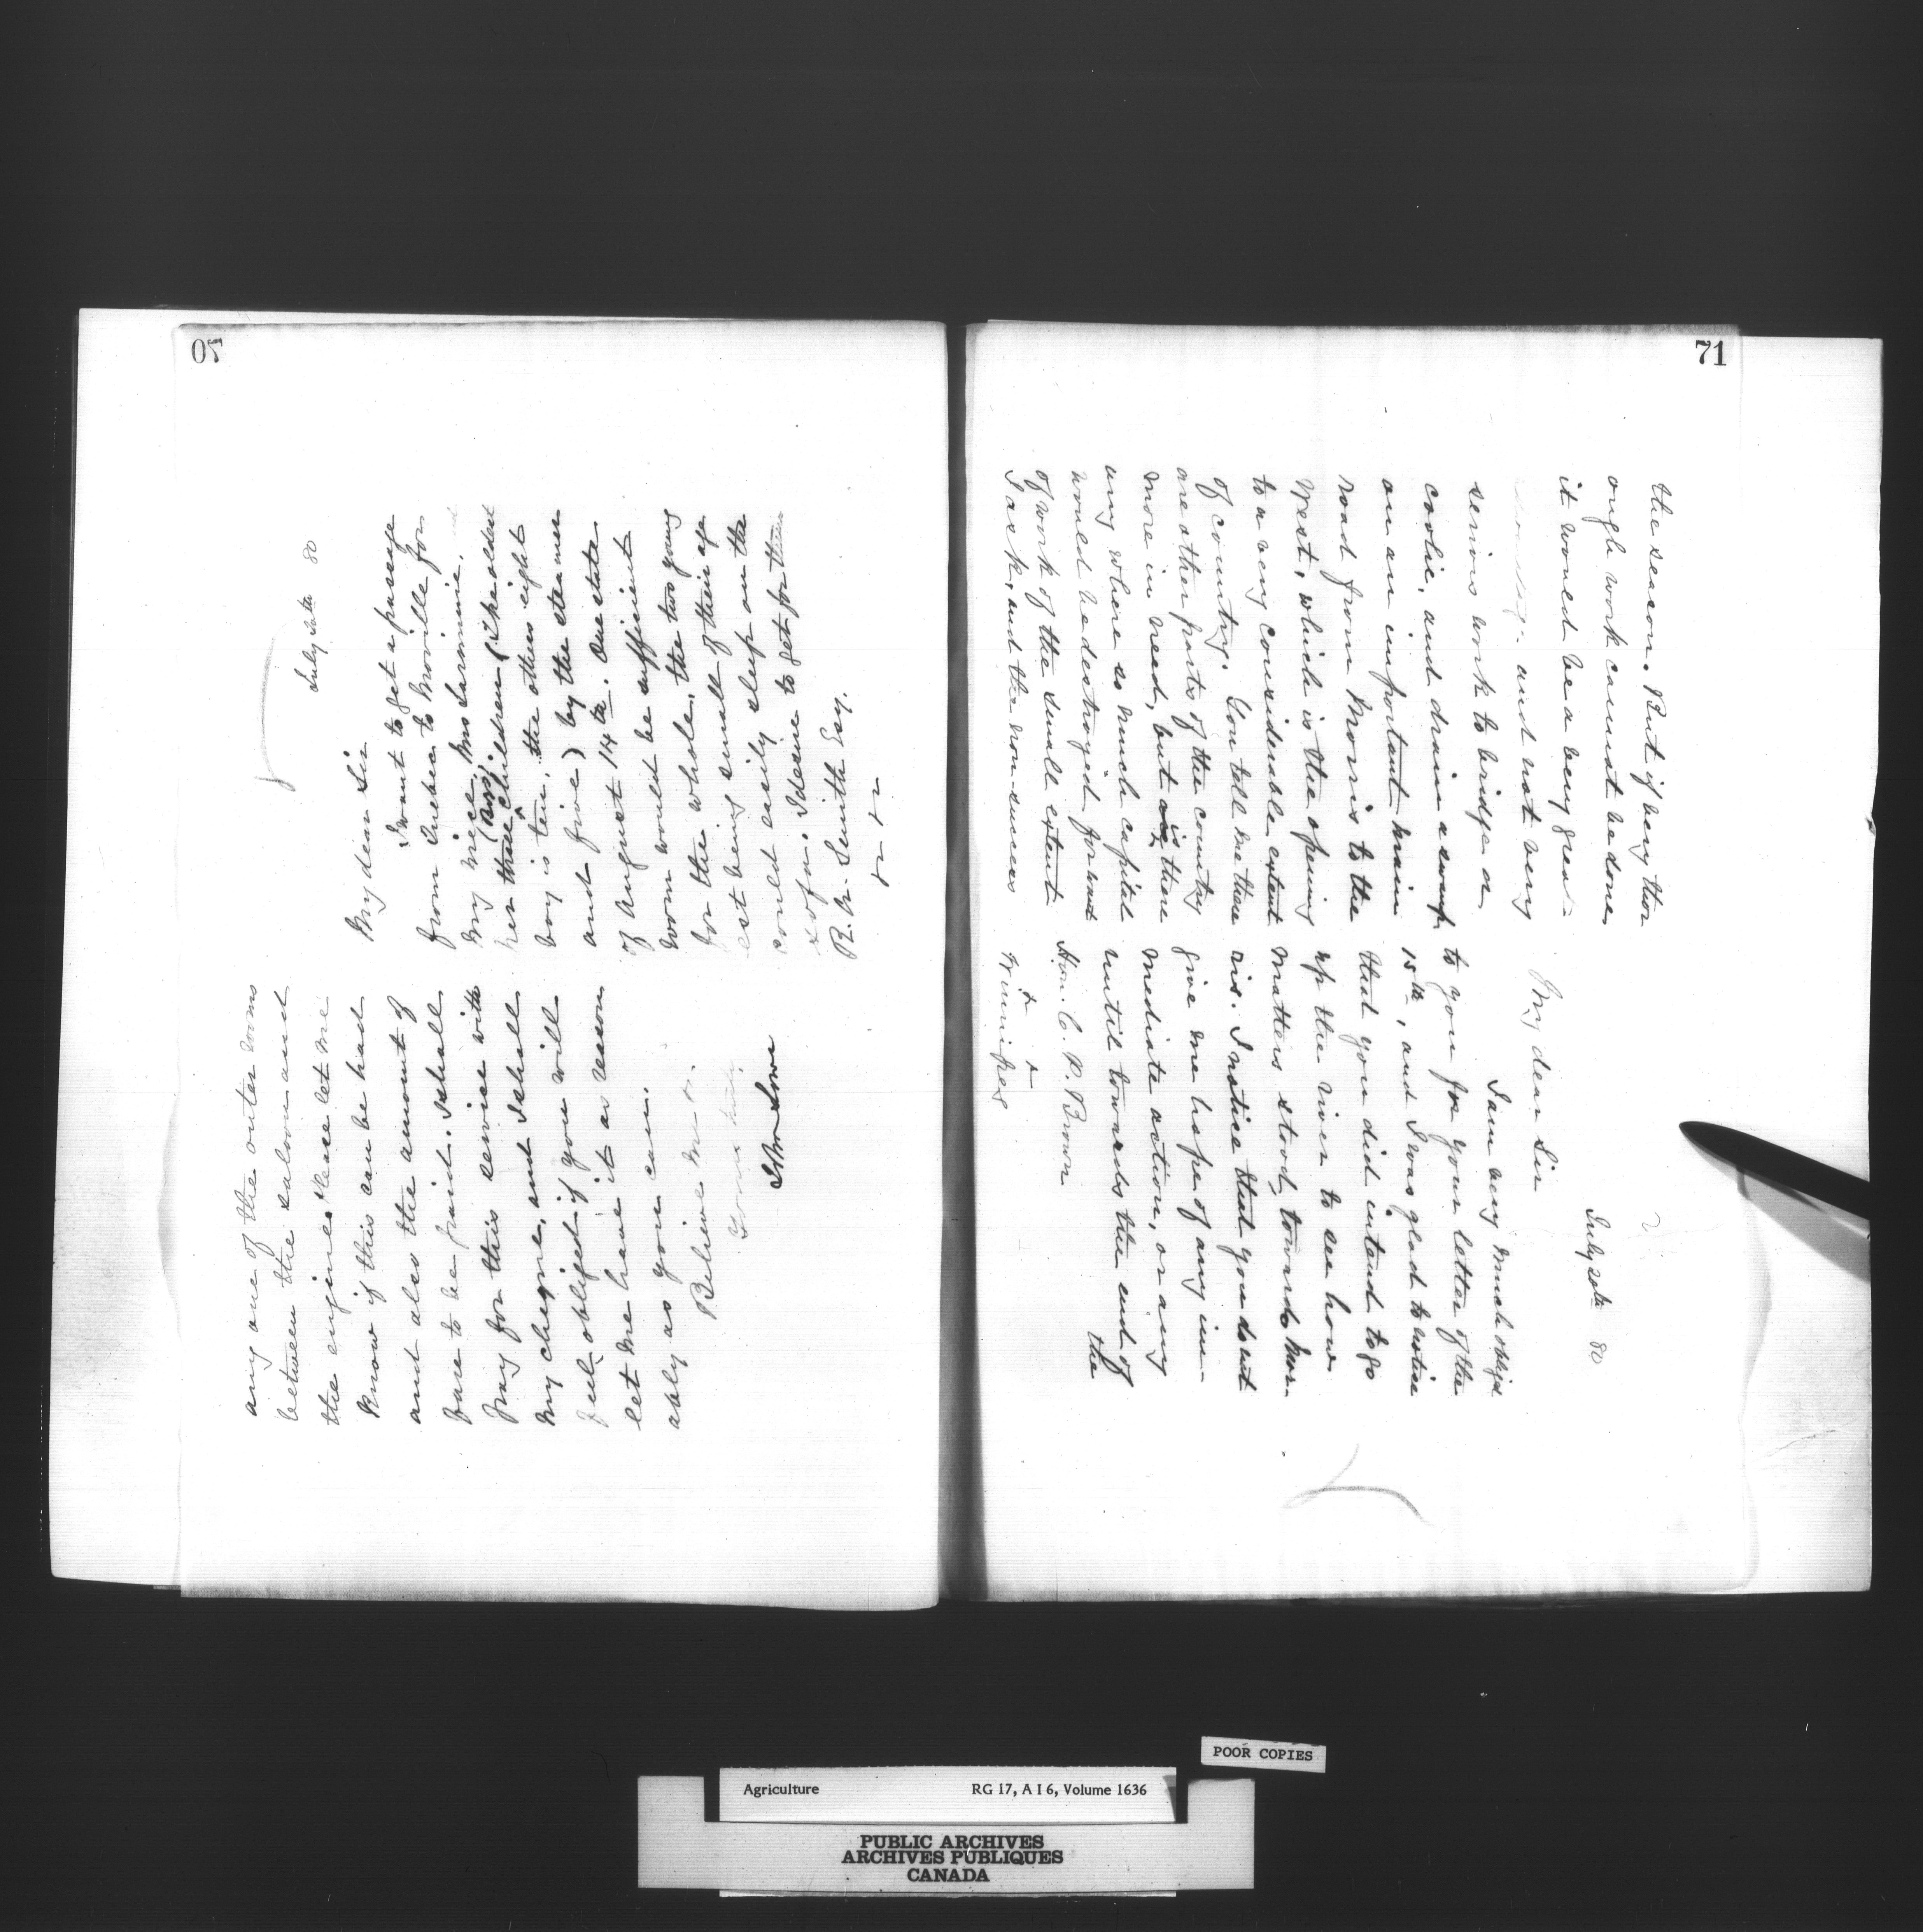 70
July 20th 80
My dear Sir
I want to get a passage
from Quebec to Moville for
my niece, Mrs
her three (boys) children (the oldest
boy is ten, the others eight
and five) by the steamer
of August 14th. One state
room would be sufficient
for the whole, the two young
est being small of their age
could easily sleep on the
sofa. I desire to get for them
R. A. Smith Esq.
any one of the outer rooms
between the saloon and
the engine. Please let me
know if this can be had
and also the amount of
fare to be paid. I shall
pay for this service with
my cheque, and I shall
feel obliged if you will
let me have it as reason
ably as you can.
Believe me
Yours truly
John Lowe
71
July 20th 80
My dear Sir
I am very much obliged
to you for your letter of the
15th, and I was glad to notice
that you did intend to go
up the river to see how
matters stood, towards Mor-
ris. I notice that you do not
give me hope of any im-
mediate action, or any
until towards the end of
the
Hon. C. P. Brown
Winnipeg
the season. But if very thor
ough work cannot be done
it would be a very great
and not very
serious work to bridge a
coolie, and drain a swamp
on an important main
road from Morris to the
West, which is the opening
to a very considerable extent
of country. You tell me there
are other parts of the country
more in need, but is there
any where so much capital
would be destroyed for want
of work of the small extent
I ask, and the non-success
POOR COPIES
Agriculture RG 17, A I 6, Volume 1636
PUBLIC ARCHIVES
ARCHIVES PUBLIQUES
CANADA